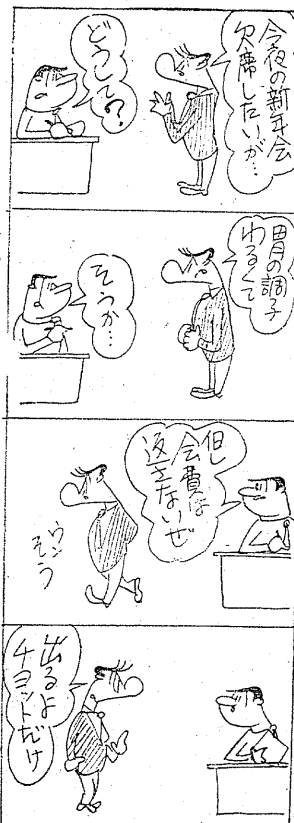 今夜の新年会
欠席したいが…
どうして?
胃の調子
わるくて
そうか…
但し
会費は
返さないぜ
ウン
そう
出るよ
チョットだけ